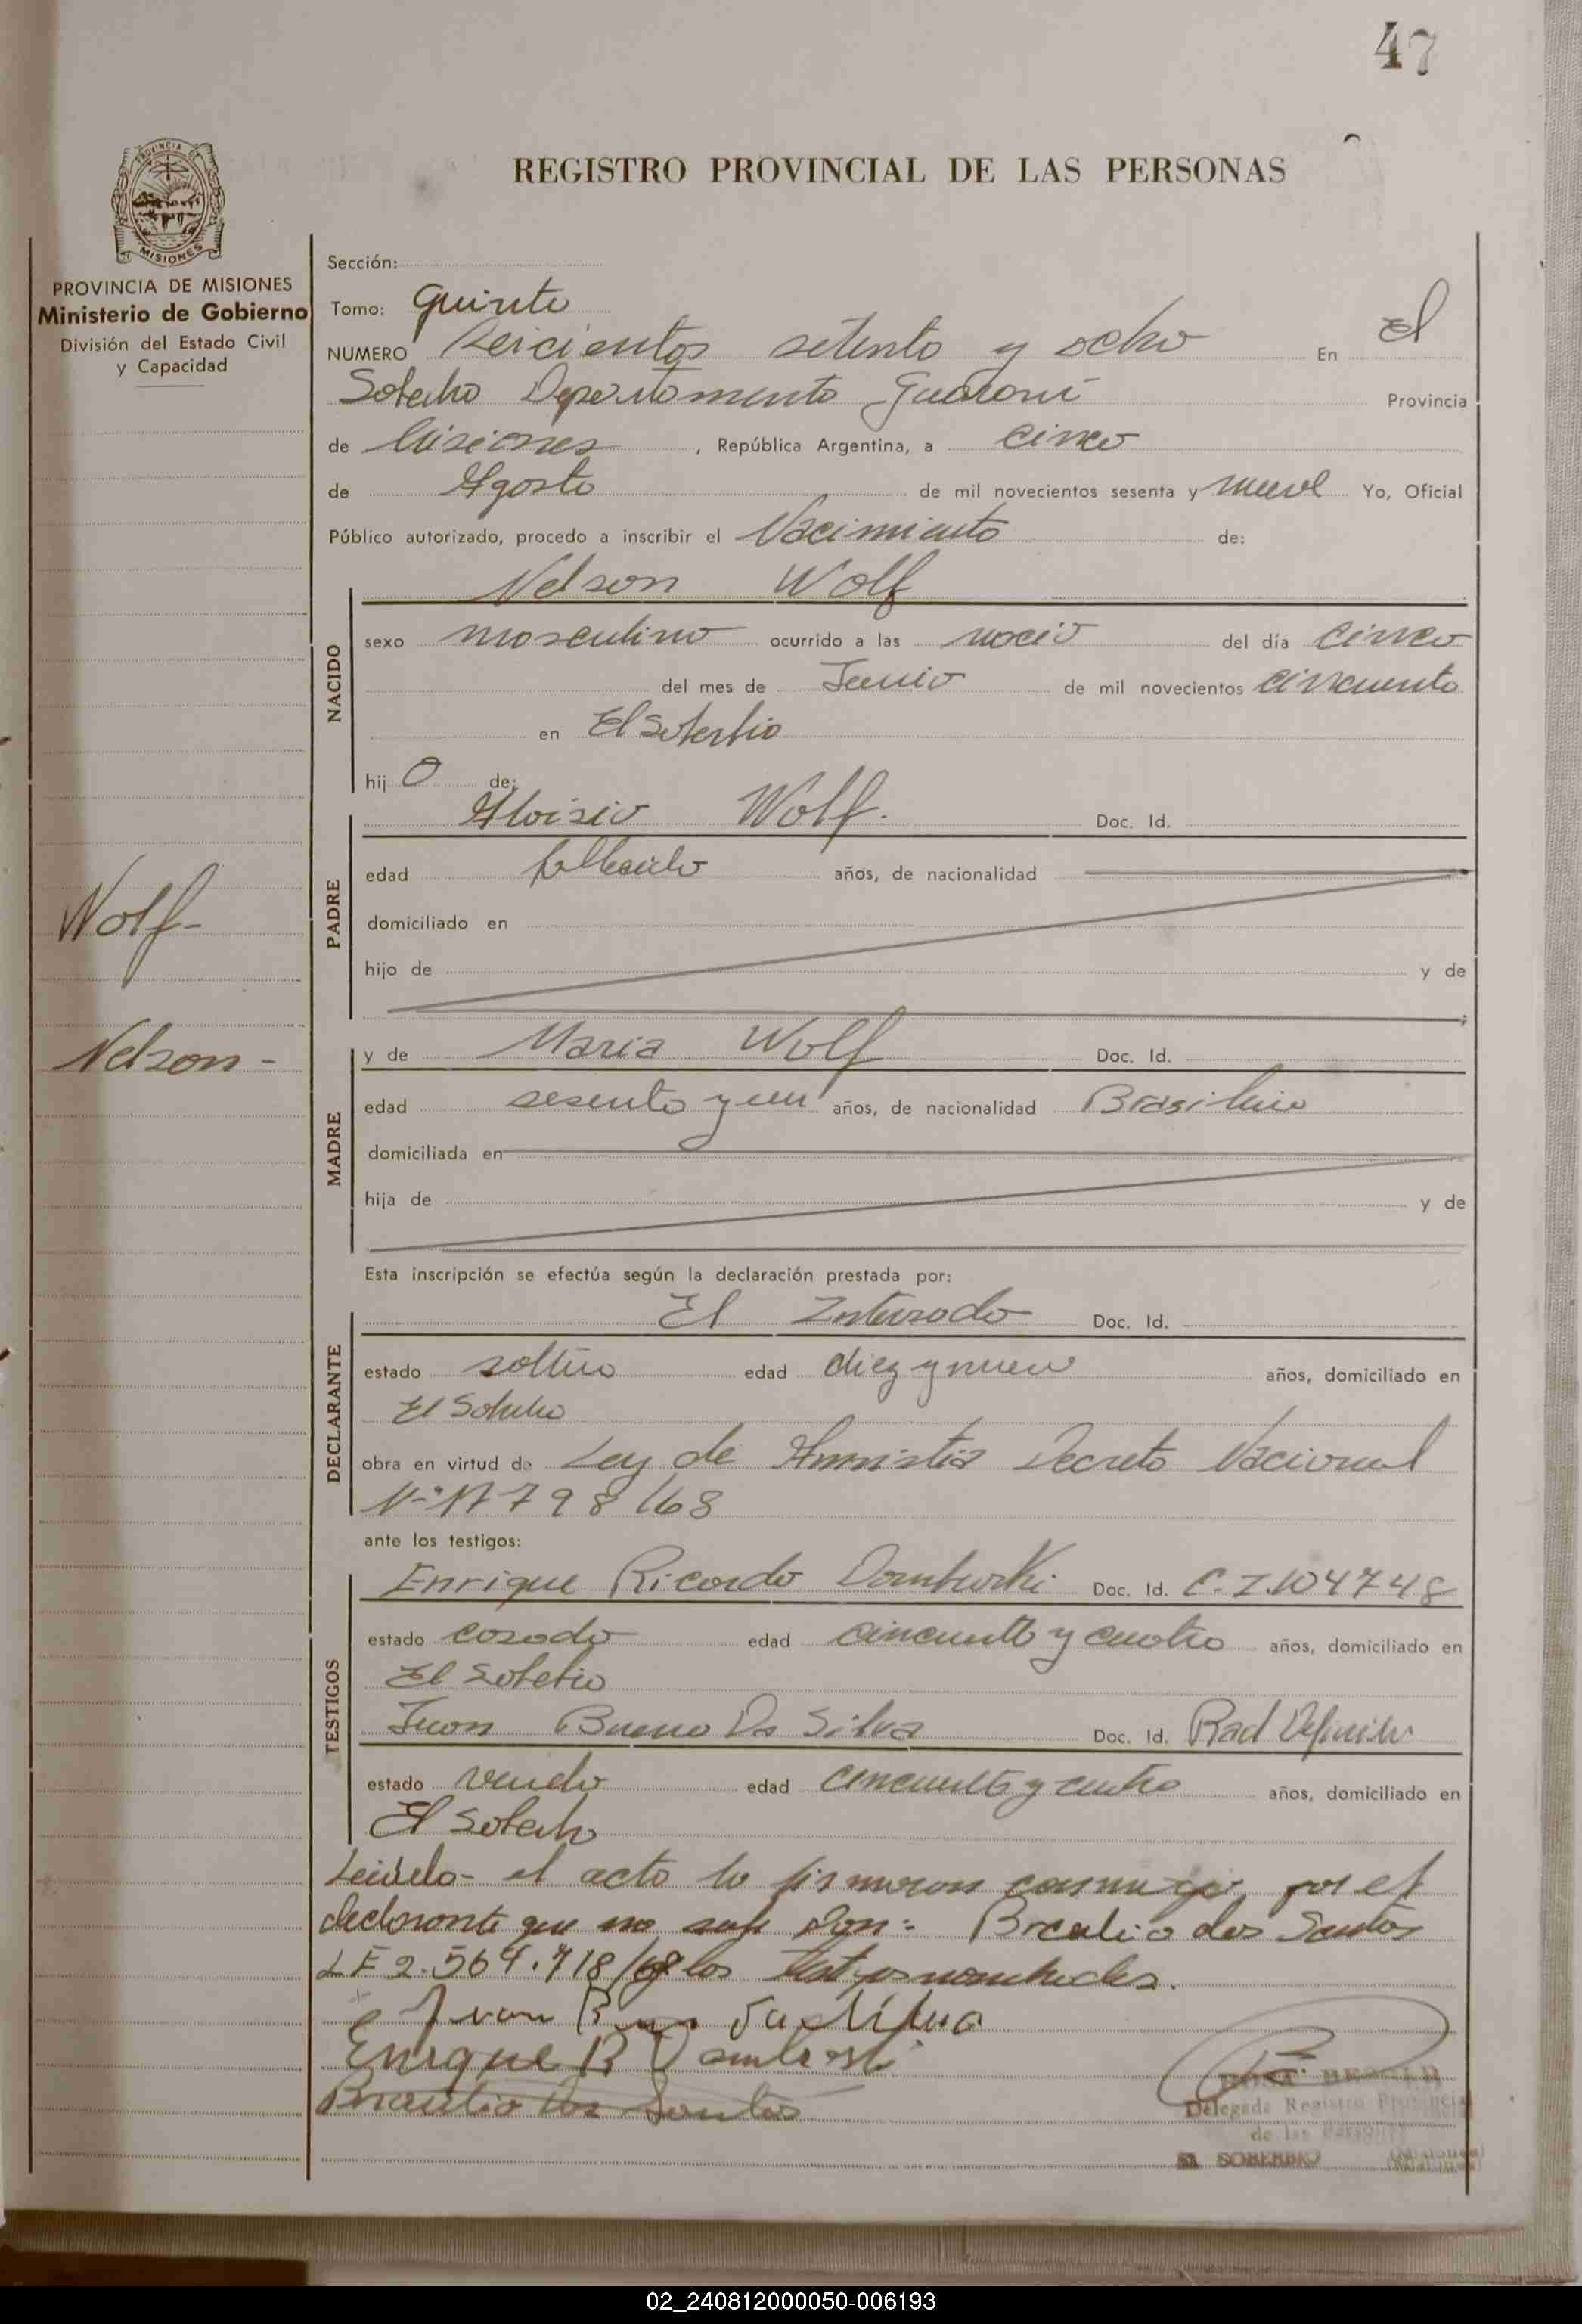 47
PROVINCIA DE
MISIONES
REGISTRO PROVINCIAL DE LAS PERSONAS
PROVINCIA DE MISIONES
Ministerio de Gobierno
División del Estado Civil
y Capacidad
Wolf-
Nelson-
Sección:
Tomo: Quinto
NUMERO Seicientos setenta y ocho En El
Soberbio Departamento Guaraní Provincia
de Misiones, República Argentina, a cinco
de Agosto de mil novecientos sesenta y nueve Yo, Oficial
Público autorizado, procedo a inscribir el Nacimiento de:
Nelson Wolf
NACIDO
sexo masculino ocurrido a las nació del día cinco
del mes de Junio de mil novecientos cincuenta
en El Soberbio
hijo de:
PADRE
Aloisio Wolf. Doc. Id.
edad fallecido años, de nacionalidad
domiciliado en
hijo de y de
MADRE
y de Maria Wolf Doc. Id.
edad sesenta y un años, de nacionalidad Brasileña
domiciliada en
hija de y de
Esta inscripción se efectúa según la declaración prestada por:
DECLARANTE
El Interesado Doc. Id.
estado soltero edad diez y nueve años, domiciliado en
El Soberbio
obra en virtud de Ley de Amnistia Decreto Nacional
Nº 17798/68
ante los testigos:
TESTIGOS
Enrique Ricardo Doc. Id. C.I.104748
estado casado edad cincuenta y cuatro años, domiciliado en
El Soberbio
Juan Bueno Da Silva Doc. Id. Rad
estado viudo edad cincuenta y cuatro años, domiciliado en
El Soberbio
Leídola el acta la firmaron conmigo, por el
declarante que no sabe Don: Braulio dos Santos
LE 2.564.718/ los testigos nombrados.
Juan Da Silva
Enrique R
Braulio Dos Santos
ROSA
Delegada Registro Provincial
de las Personas
EL SOBERBIO (Misiones)
02_240812000050-006193